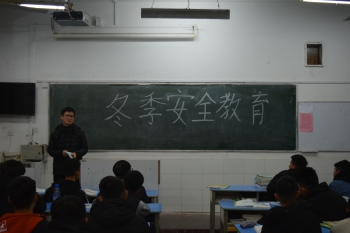 冬季安全教育